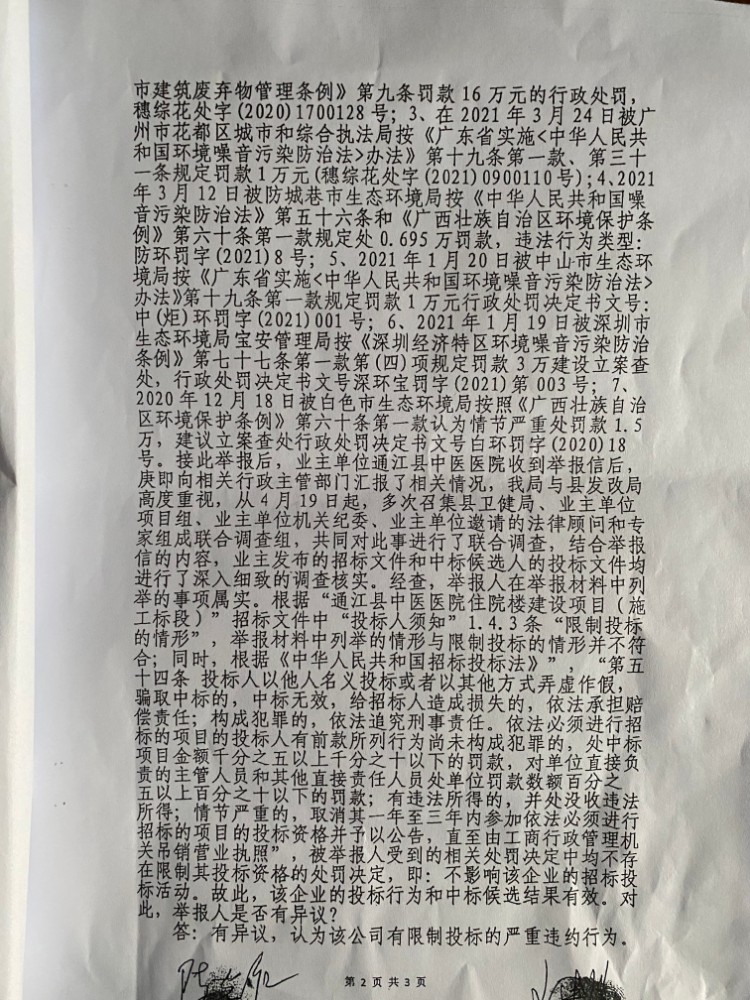 市建筑废弃物管理条例》第九条罚款16万元的行政处罚,
穗综花处字(2020)1700128号;3、在2021年3月24日被广
州市花都区城市和综合执法局按《广东省实施<中华人民共
和国环境噪音污染防治法>办法》第十九条第一款、第三十
一条规定罚款1万元(穗综花处字(2021)0900110号);4、2021
年3月12日被防城巷市生态环境局按《中华人民共和国噪
音污染防治法》第五十六条和《广西壮族自治区环境保护条
例》第六十条第一款规定处0.695万罚款,违法行为类型:
防环罚字(2021)8号;5、2021年1月20日被中山市生态环
境局按《广东省实施<中华人民共和国环境噪音污染防治法>
办法》第十九条第一款规定罚款1万元行政处罚决定书文号:
中(炬)环罚字(2021)001号;6、2021年1月19日被深圳市
生态环境局宝安管理局按《深圳经济特区环境噪音污染防治
条例》第七十七条第一款第(四)项规定罚款3万建设立案查
处,行政处罚决定书文号深环宝罚字(2021)第003号;7、
2020年12月18日被白色市生态环境局按照《广西壮族自治
区环境保护条例》第六十条第一款认为情节严重处罚款1.5
万,建议立案查处行政处罚决定书文号白环罚字(2020)18
号。接此举报后,业主单位通江县中医医院收到举报信后,
庚即向相关行政主管部门汇报了相关情况,我局与县发改局
高度重视,从4月19日起,多次召集县卫健局、业主单位
项目组、业主单位机关纪委、业主单位邀请的法律顾问和专
家组成联合调查组,共同对此事进行了联合调查,结合举报
信的内容,业主发布的招标文件和中标候选人的投标文件均
进行了深入细致的调查核实。经查,举报人在举报材料中列
举的事项属实。根据“通江县中医医院住院楼建设项目(施
工标段)”招标文件中“投标人须知”1.4.3条“限制投标
的情形”,举报材料中列举的情形与限制投标的情形并不符
合;同时,根据《中华人民共和国招标投标法》”,“第五
十四条 投标人以他人名义投标或者以其他方式弄虚作假,
骗取中标的,中标无效,给招标人造成损失的,依法承担赔
偿责任;构成犯罪的,依法追究刑事责任。依法必须进行招
标的项目的投标人有前款所列行为尚未构成犯罪的,处中标
项目金额千分之五以上千分之十以下的罚款,对单位直接负
责的主管人员和其他直接责任人员处单位罚款数额百分之
五以上百分之十以下的罚款;有违法所得的,并处没收违法
所得;情节严重的,取消其一年至三年内参加依法必须进行
招标的项目的投标资格并予以公告,直至由工商行政管理机
关吊销营业执照”,被举报人受到的相关处罚决定中均不存
在限制其投标资格的处罚决定,即:不影响该企业的招标投
标活动。故此,该企业的投标行为和中标候选结果有效。对
此,举报人是否有异议?
答:有异议,认为该公司有限制投标的严重违约行为。
第2页共3页